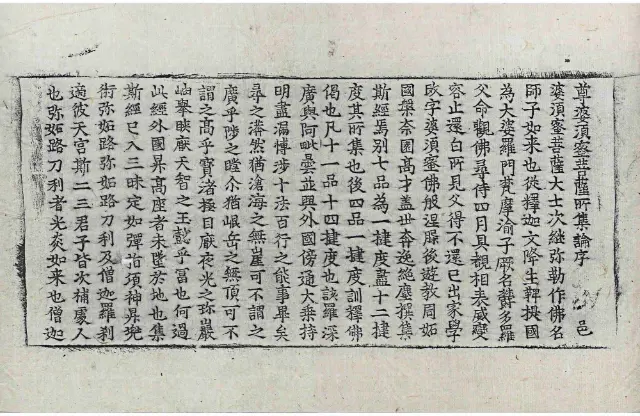 尊婆須蜜菩薩所集論序　邑
婆須蜜菩薩大士次継弥勒作佛名
師子如來也從釋迦文降生鞞提國
為大婆羅門梵摩渝子厥名欝多羅
父命觀佛尋侍四月具覩相表威變
容止還白所見父得不還已出家學
改字婆須蜜佛般涅槃後遊教周妬
國槃奈園高才盖世奔逸絶塵撰集
斯經焉別七品為一揵度盡十二揵
度其所集也後四品一揵度訓釋佛
偈也凡十一品十四揵度也該羅深
廣與阿毗曇並興外國傍通大乗持
明盡漏博涉十法百行之能事畢矣
尋之漭然猶滄海之無崖可不謂之
廣乎陟之瞪尒猶崐岳之無頂可不
謂之高乎寶渚極目厭夜光之珎巖
岫舉睞厭天智之玉懿乎富也何過
此經外國昇髙座者未墜於地也集
斯經已入三昧定如彈指頃神昇兜
術弥妬路弥妬路刀利及僧迦羅刹
適彼天宮斯二三君子皆次補處人
也弥妬路刀利者光炎如來也僧迦